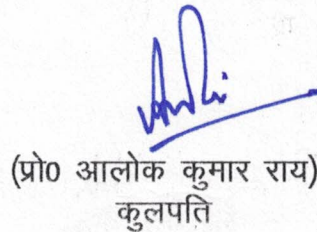 (प्रो0 आलोक कुमार राय)
कुलपति